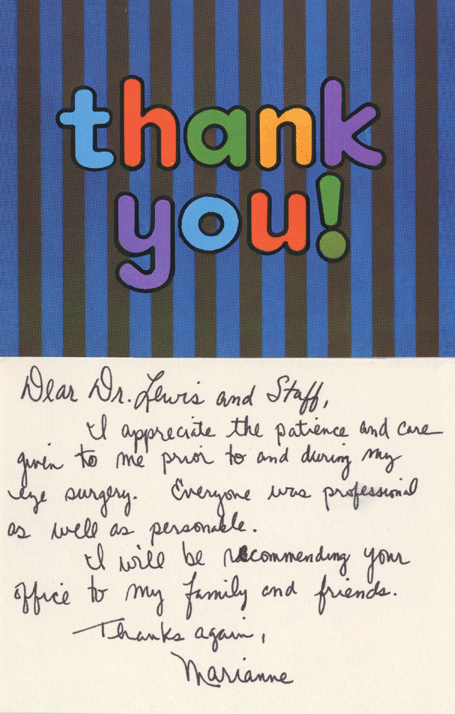 thank
you!
Dear Dr. Lewis and Staff,
I appreciate the patience and care
given to me prior to and during my
eye surgery. Everyone was professional
as well as personable.
I will be recommending your
office to my family and friends.
Thanks again,
Marianne